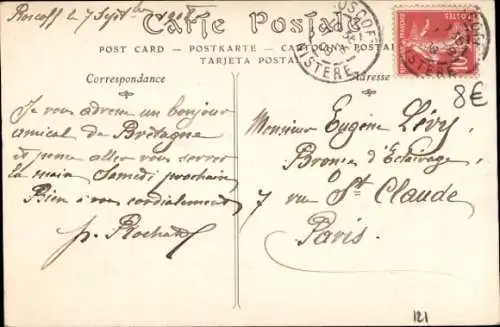 Roscoff le 7 Septbre 1908
Carte Postale
POST CARD — POSTKARTE — CARTOLINA POSTAL
TARJETA POSTAL
ROSCOFF
FINISTERE
POSTES
10
8€
Correspondance
Adresse
Je vous adresse un bonjour
amical de Bretagne
et pense aller vous serrer
la main Samedi prochain,
Bien à vous cordialement
p. Rochat
Monsieur Eugène Lévy
Bronzes d'Eclairage
7 rue St Claude
Paris.
121